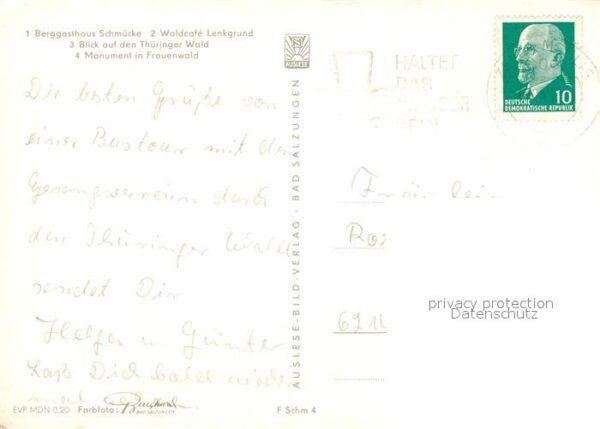 1 Berggasthaus Schmücke 2 Waldcafé Lenkgrund
3 Blick auf den Thüringer Wald
4 Monument in Frauenwald
AUSLESE
HALTET
DAS
DEUTSCHE
DEMOKRATISCHE REPUBLIK 10
Die besten Grüße von
einer Bustour mit dem
Gesangverein durch
den Thüringer Wald
sendet Dir
Helga u. Günter
Laß Dich bald wieder
mal
AUSLESE-BILD-VERLAG · BAD SALZUNGEN
Fräulein
Ros
privacy protection
Datenschutz
EVP MDN 0,20 Farbfoto:
BAD SALZUNGEN
F Schm 4